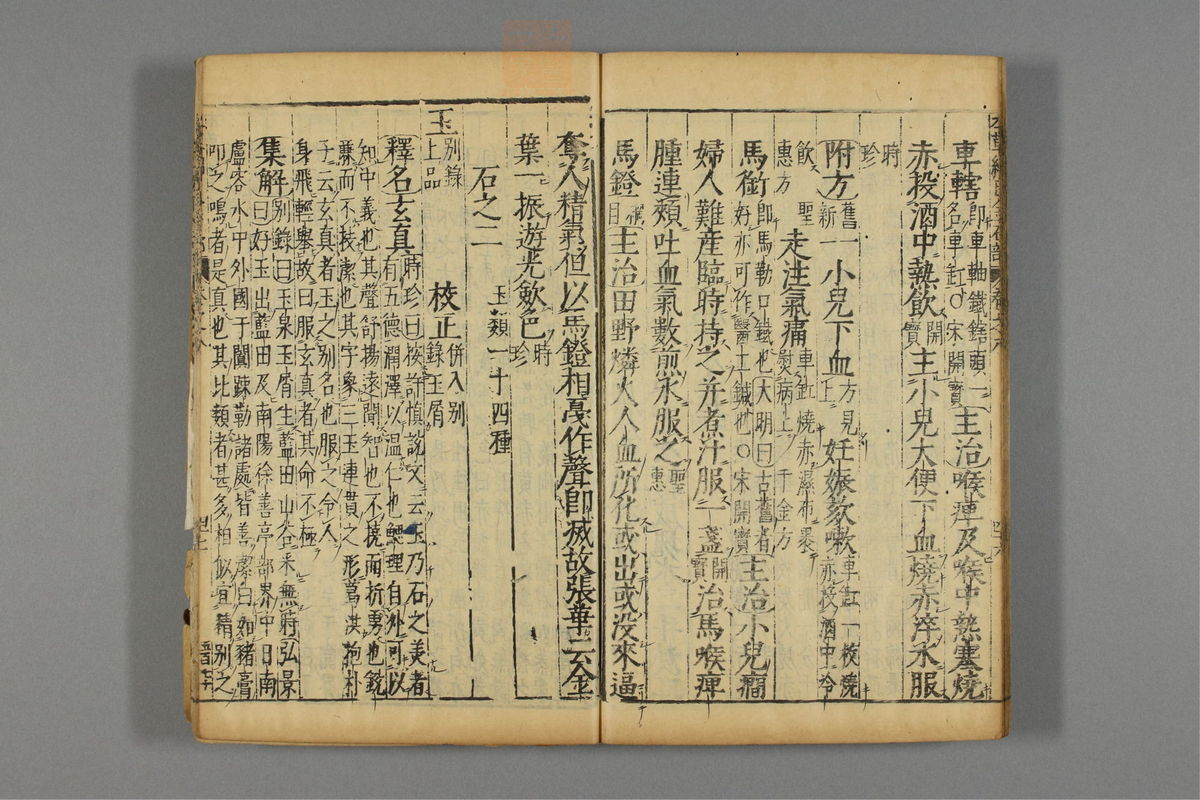 車轄即車軸鐵鎋頭一名車缸○宋開寶主治喉痺及喉中熱塞燒
赤投酒中熱飲開寶主小兒大便下血燒赤淬水服
時珍
附方舊一新一小兒下血方見上妊娠欬嗽車缸一枚燒赤投酒中冷
飲聖惠方走注氣痛車缸燒赤濕布裹熨病上千金方
馬銜即馬勒口鐵也大明曰古舊者好亦可作醫工鍼也○宋開寶主治小兒癇
婦人難產臨時持之并煮汁服一盞開寶治馬喉痺
腫連頰吐血氣數煎水服之聖惠
馬鐙綱目主治田野燐火人血所化或出或没來逼
奪人精氣但以馬鐙相戛作聲即滅故張華云金
葉一振遊光斂色時珍
石之二玉類一十四種
玉別錄上品校正併入別錄玉屑
釋名玄真時珍曰按許慎說文云玉乃石之美者
有五德潤澤以温仁也䚡理自外可以
知中義也其聲舒揚遠聞智也不撓而折勇也銳
亷而不技潔也其字象三玉連貫之形葛洪抱朴
子云玄真者玉之别名也服之令人
身飛輕舉故曰服玄真者其命不極
集解别錄曰玉泉玉屑生藍田山谷采無時弘景
曰好玉出藍田及南陽徐善亭部界中日南
盧容水中外國于闐踈勒諸處皆善潔白如豬膏
叩之鳴者是真也其比類者甚多相似宜精别之